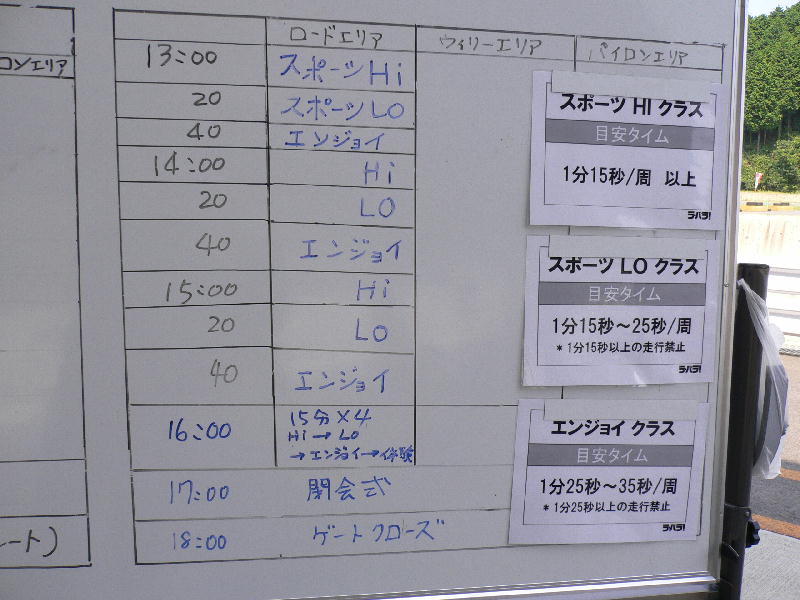 ロンエリア
ート)
ロードエリア ウィリーエリア パイロンエリア
13:00 スポーツHi
20 スポーツLO
40 エンジョイ
14:00 Hi
20 LO
40 エンジョイ
15:00 Hi
20 LO
40 エンジョイ
16:00 15分×4
Hi→LO
→エンジョイ→体験
17:00 閉会式
18:00 ゲートクローズ
スポーツ HI クラス
目安タイム
1分15秒/周 以上
ラパラ!
スポーツ LO クラス
目安タイム
1分15秒～25秒/周
*1分15秒以上の走行禁止
ラパラ!
エンジョイ クラス
目安タイム
1分25秒～35秒/周
*1分25秒以上の走行禁止
ラパラ!